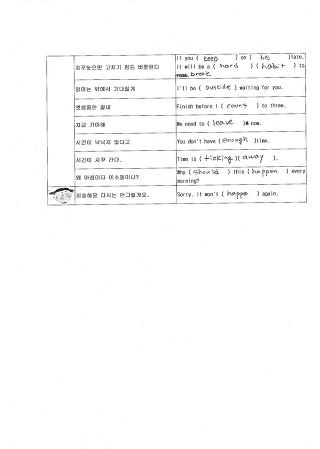 자꾸늦으면 고치기 힘든 버릇된다
If you ( keep ) on ( be )late.
it will be a ( hard ) ( habit ) to
break
엄마는 밖에서 기다릴게
I'll be ( outside ) waiting for you.
셋셀동안 끝내
Finish before I ( count ) to three.
지금 가야해
We need to ( leave ) now.
시간이 넉넉지 않다고
You don't have ( enough )time.
시간이 자꾸 간다.
Time is ( ticking )( away ).
왜 아침마다 이소동이니?
Why ( should ) this ( happen ) every
morning?
죄송해요 다시는 안그럴게요.
Sorry. It won't ( happe ) again.